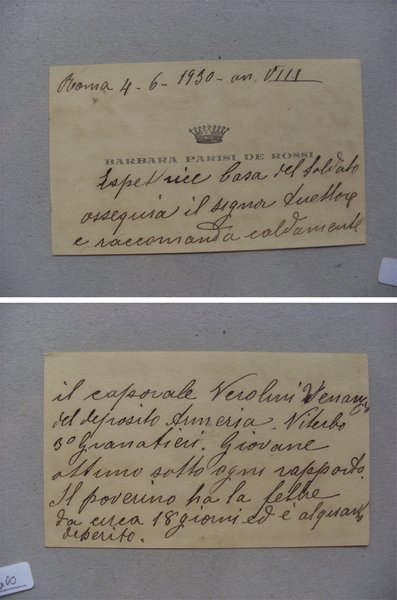 Roma 4-6-1930-an. VIII
BARBARA PARISI DE ROSSI
Ispettrice Casa del Soldato
ossequia il signor Direttore
e raccomanda caldamente
il caporale Verolini Venanzo
del deposito Armeria - Viterbo
3º Granatieri. Giovane
ottimo sotto ogni rapporto.
Il poverino ha la febbre
da circa 18 giorni ed è alquanto
deperito.